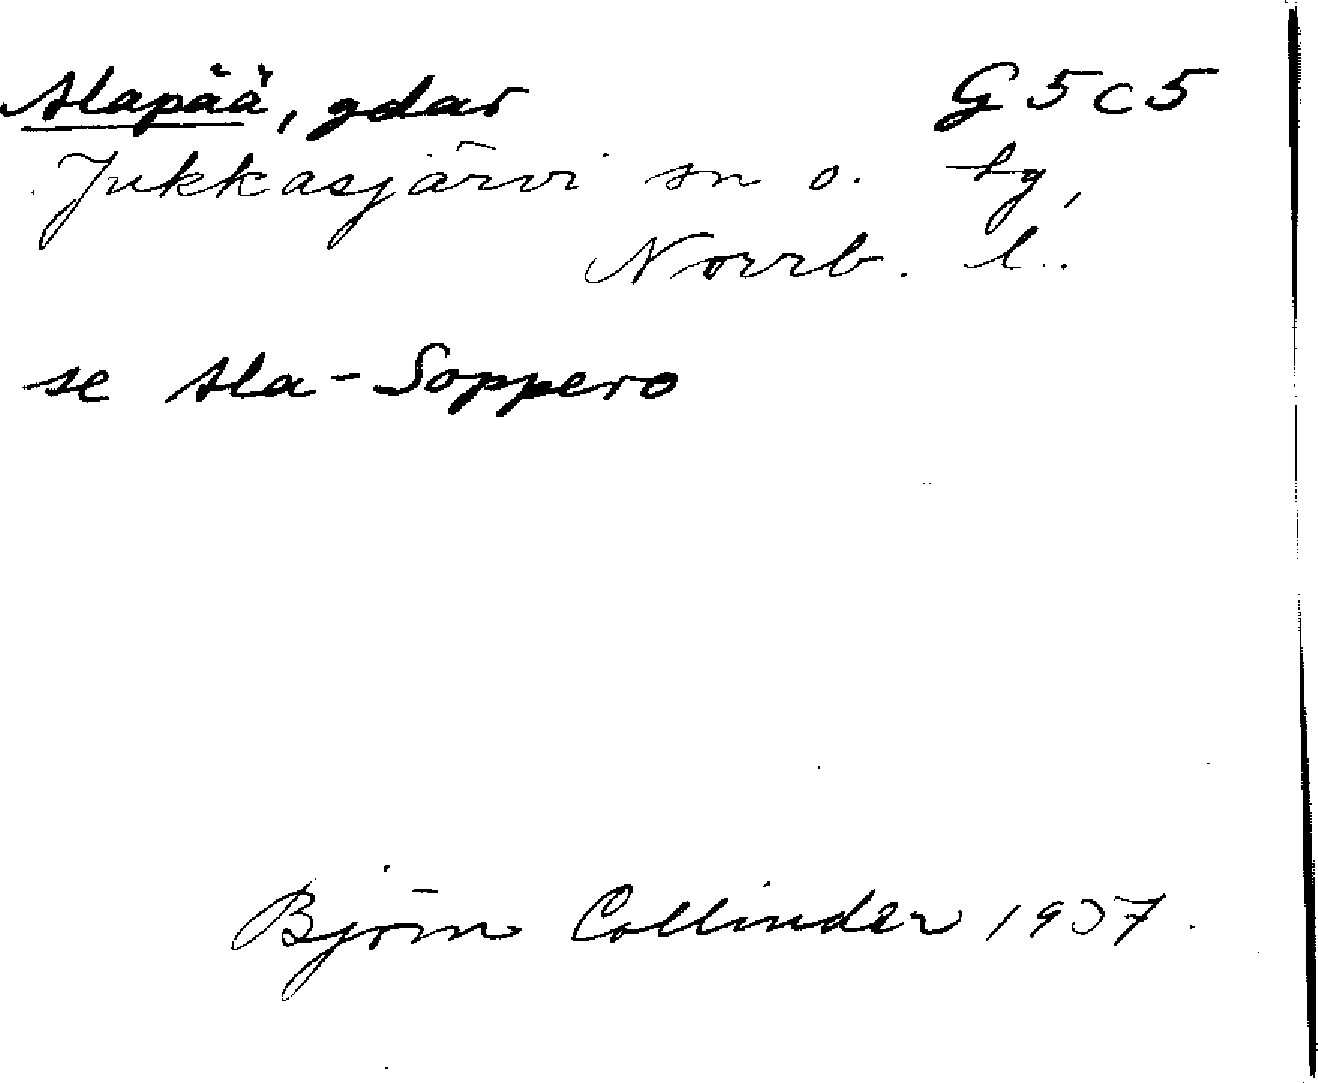 Alapää, gdar G 5 c 5
Jukkasjärvi sn o. tg,
Norrb. l.
se Ala-Soppero
Björn Collinder 1937.